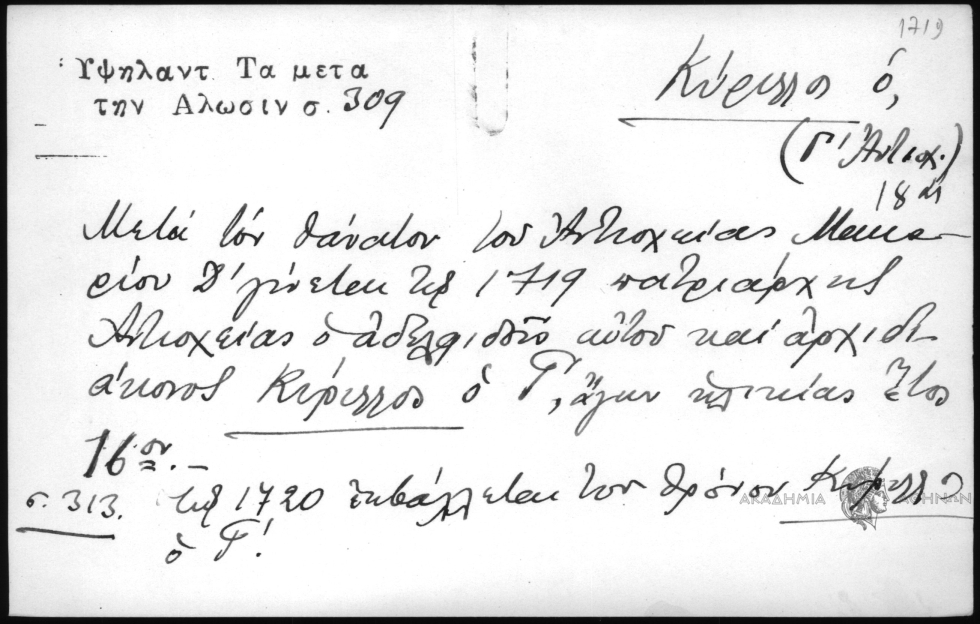 1719
Ὑψηλαντ. Τα μετα
την Αλωσιν σ. 309
Κύριλλος ὁ,
(Γ' Ἀντιοχ.)
18
Μετά τόν θάνατον τοῦ Ἀντιοχείας Μακα-
ρίου Δ' γίνεται τῷ 1719 πατριάρχης
Ἀντιοχείας ὁ ἀδελφιδοῦς αὐτοῦ καί ἀρχιδι-
άκονος Κύριλλος ὁ Γ', ἄγων ἡλικίας ἔτος
16ον.-
σ. 313. τῷ 1720 ἐκβάλλεται τοῦ θρόνου Κύριλλος
ὁ Γ'.
ΑΚΑΔΗΜΙΑ ΑΘΗΝΩΝ